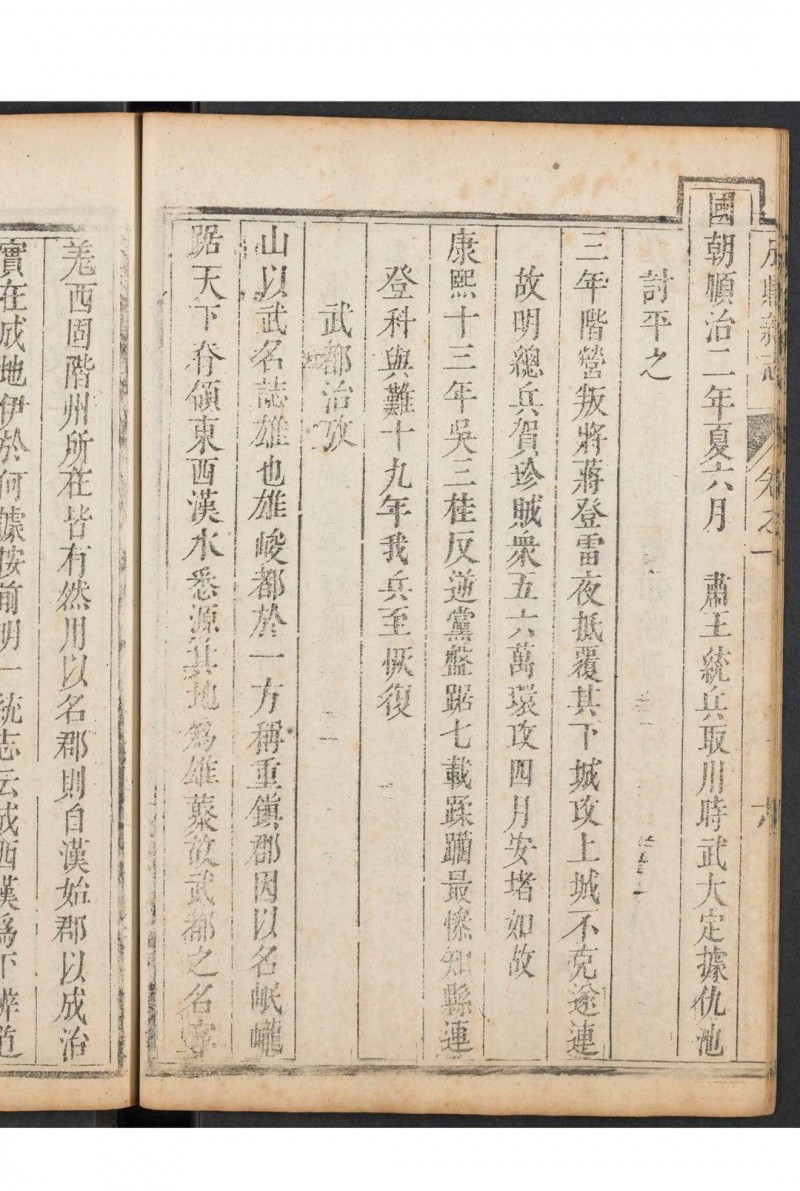 成縣新志 卷之一 六
國朝順治二年夏六月 肅王統兵取川時武大定據仇池
討平之
三年階營叛將蔣登雷夜抵覆其下城攻上城不克途連
故明總兵賀珍賊衆五六萬環攻四月安堵如故
康熙十三年吳三桂反逆黨盤踞七載蹂躪最慘知縣連
登科與難十九年我兵至恢復
武都治攷
山以武名誌雄也雄峻都於一方稱重鎮郡因以名岷巄
踞天下脊領東西漢水悉源其地爲雄蔾故武都之名
羗西固階州所在皆有然用以名郡則自漢始郡以成治
實在成地伊於何據按前明一統志云成西漢爲下辨道